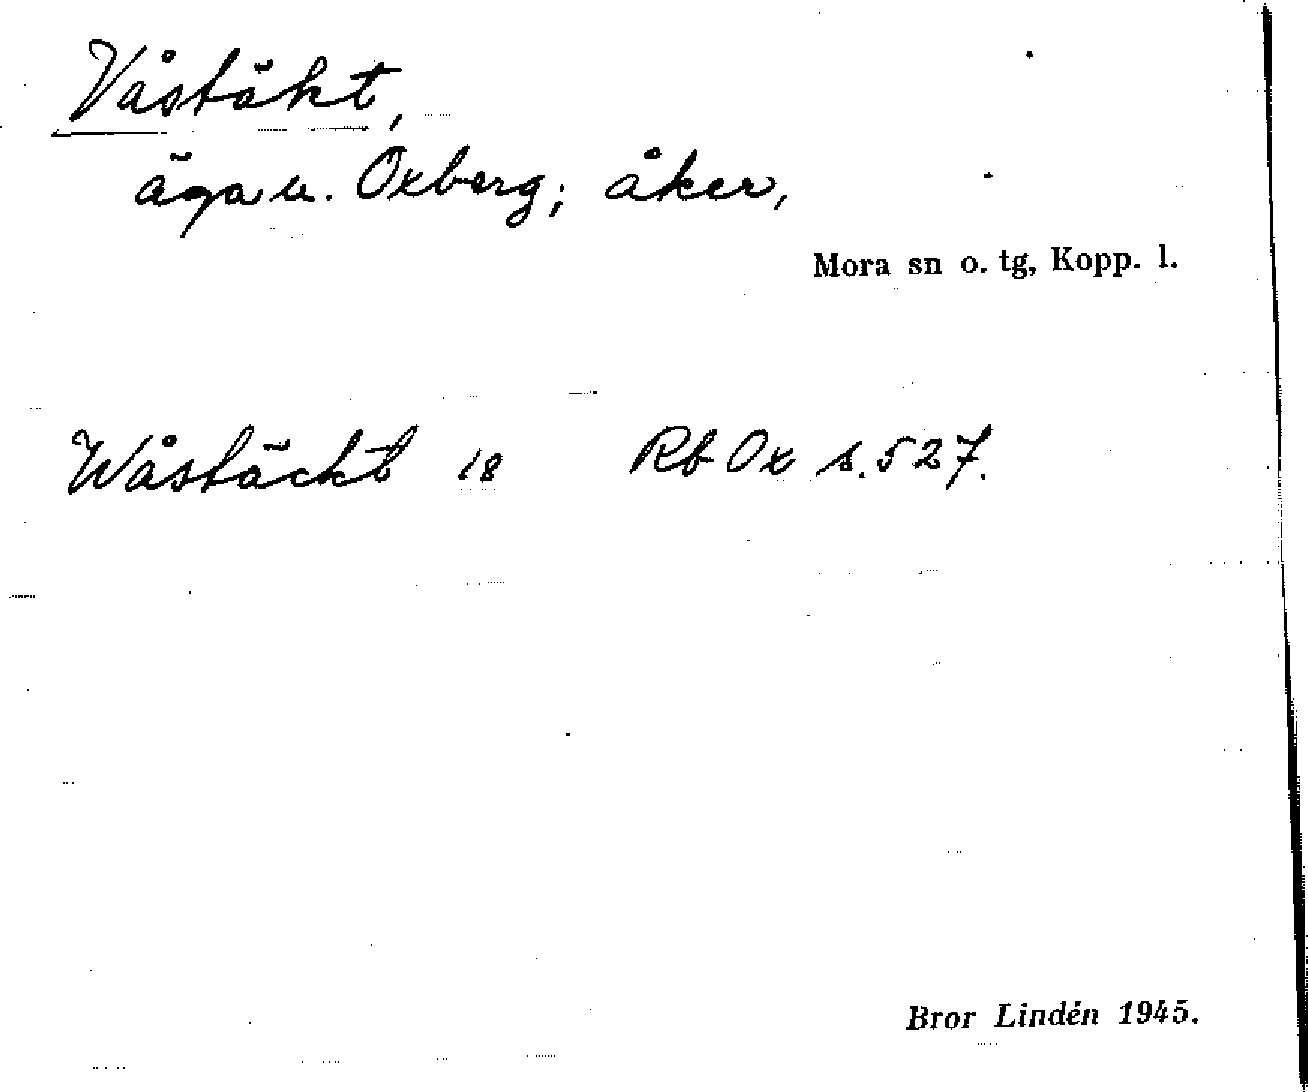 Våståkt,
äga u. Oxberg; åker,
Mora sn o. tg, Kopp. l.
Wåstäckt 18 Rb Ox s. 527.
Bror Lindén 1945.